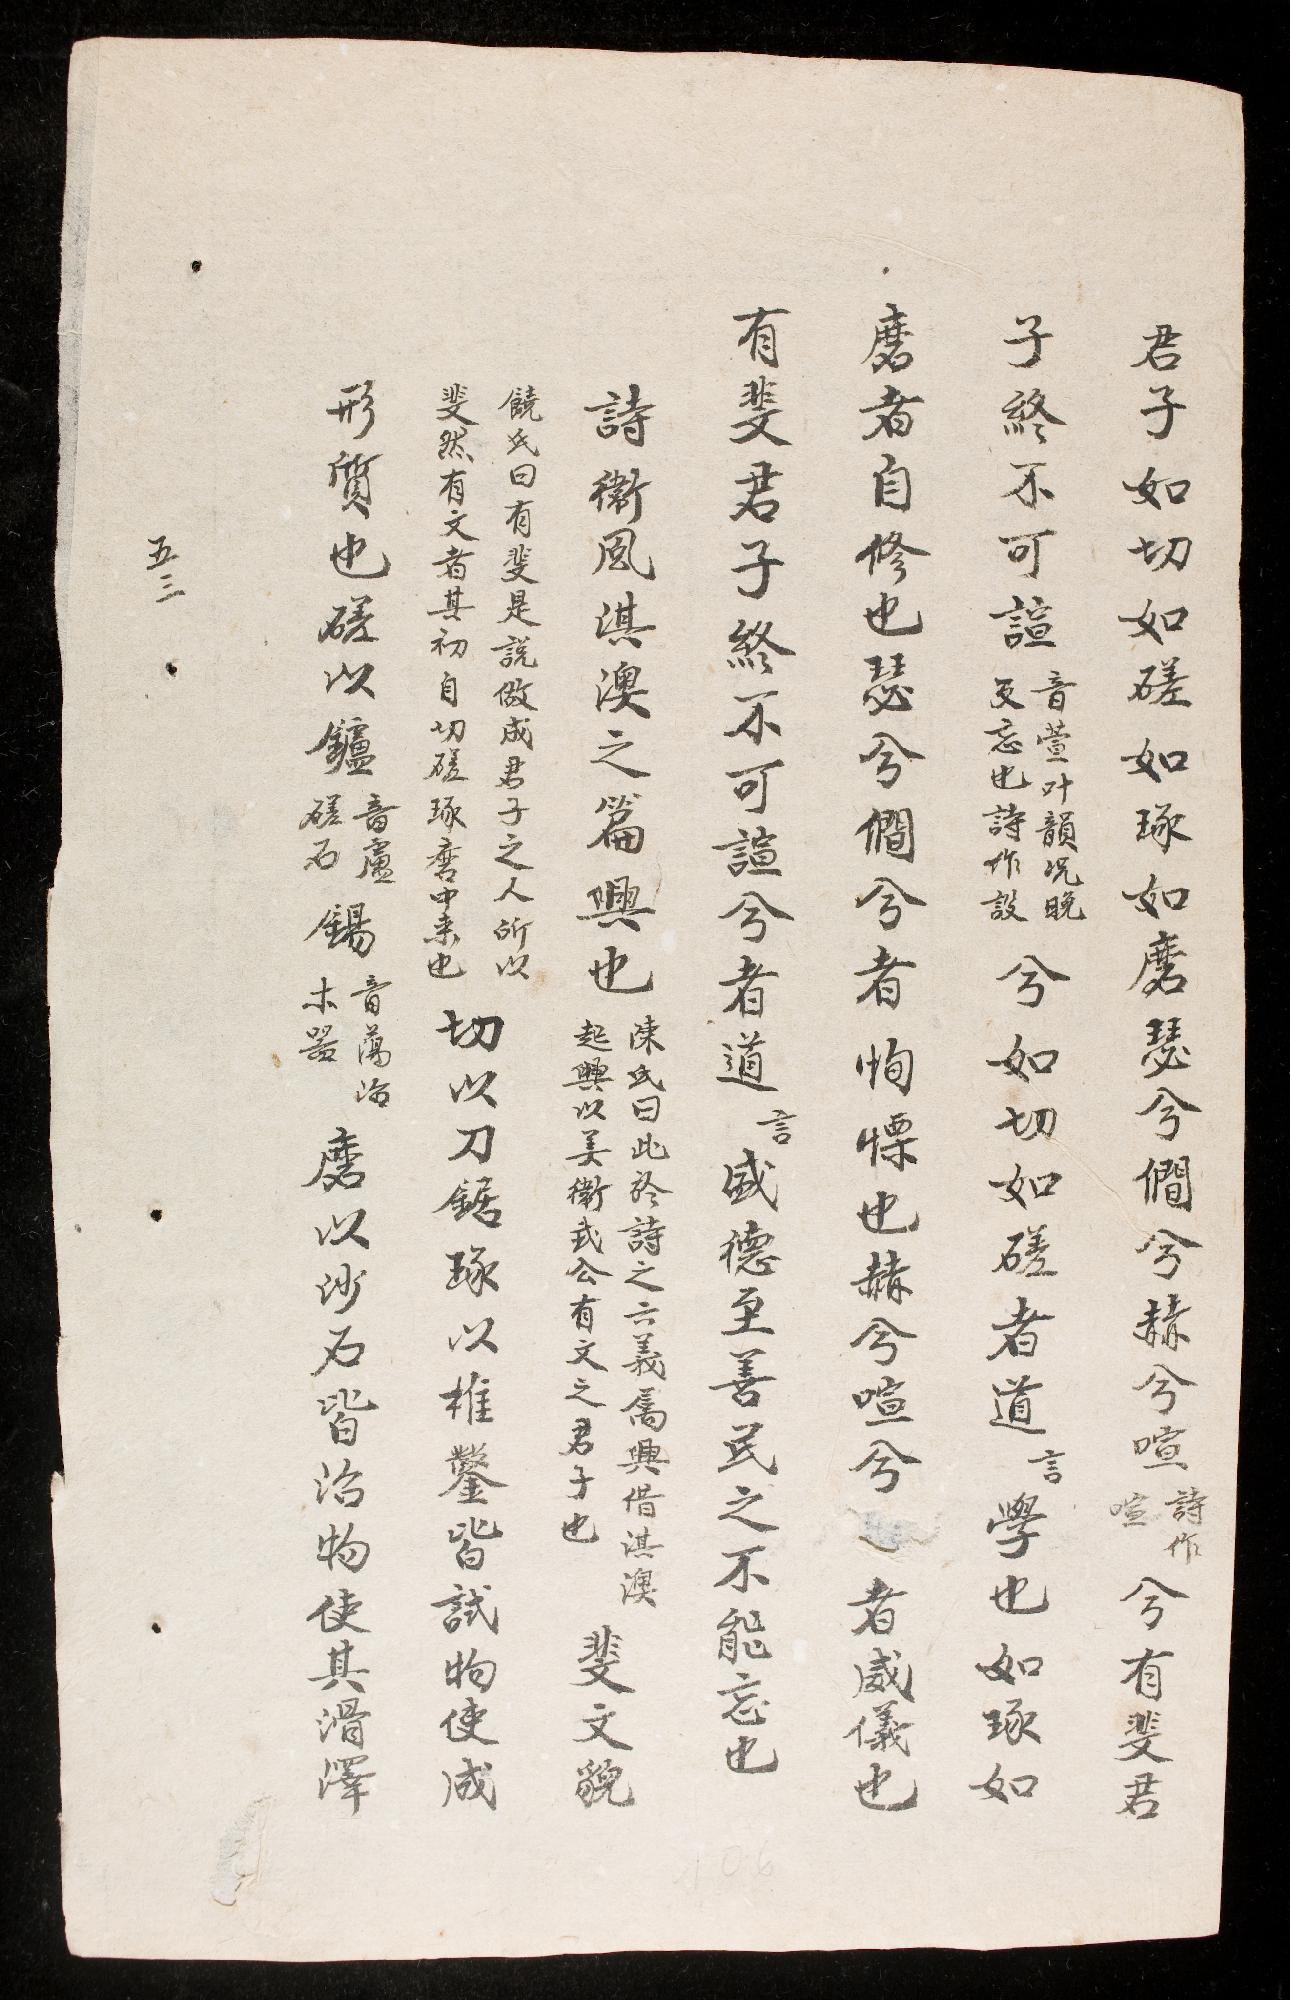 君子如切如磋如琢如磨瑟兮僩兮赫兮喧詩作喧兮有斐君
子終不可諠音萱叶韻况晚反忘也詩作諼兮如切如磋者道言學也如琢如
磨者自修也瑟兮僩兮者恂慄也赫兮喧兮者威儀也
有斐君子終不可諠兮者道言盛德至善民之不能忘也
詩衛風淇澳之篇興也陳氏曰此於詩之六義屬興借淇澳起興以美衛武公有文之君子也斐文貌
饒氏曰有斐是說做成君子之人所以斐然有文者其初自切磋琢磨中来也切以刀鋸琢以椎鑿皆試物使成
形質也磋以鑢音慮磋石鍚音蕩治木器磨以沙石皆治物使其滑澤
五三
106